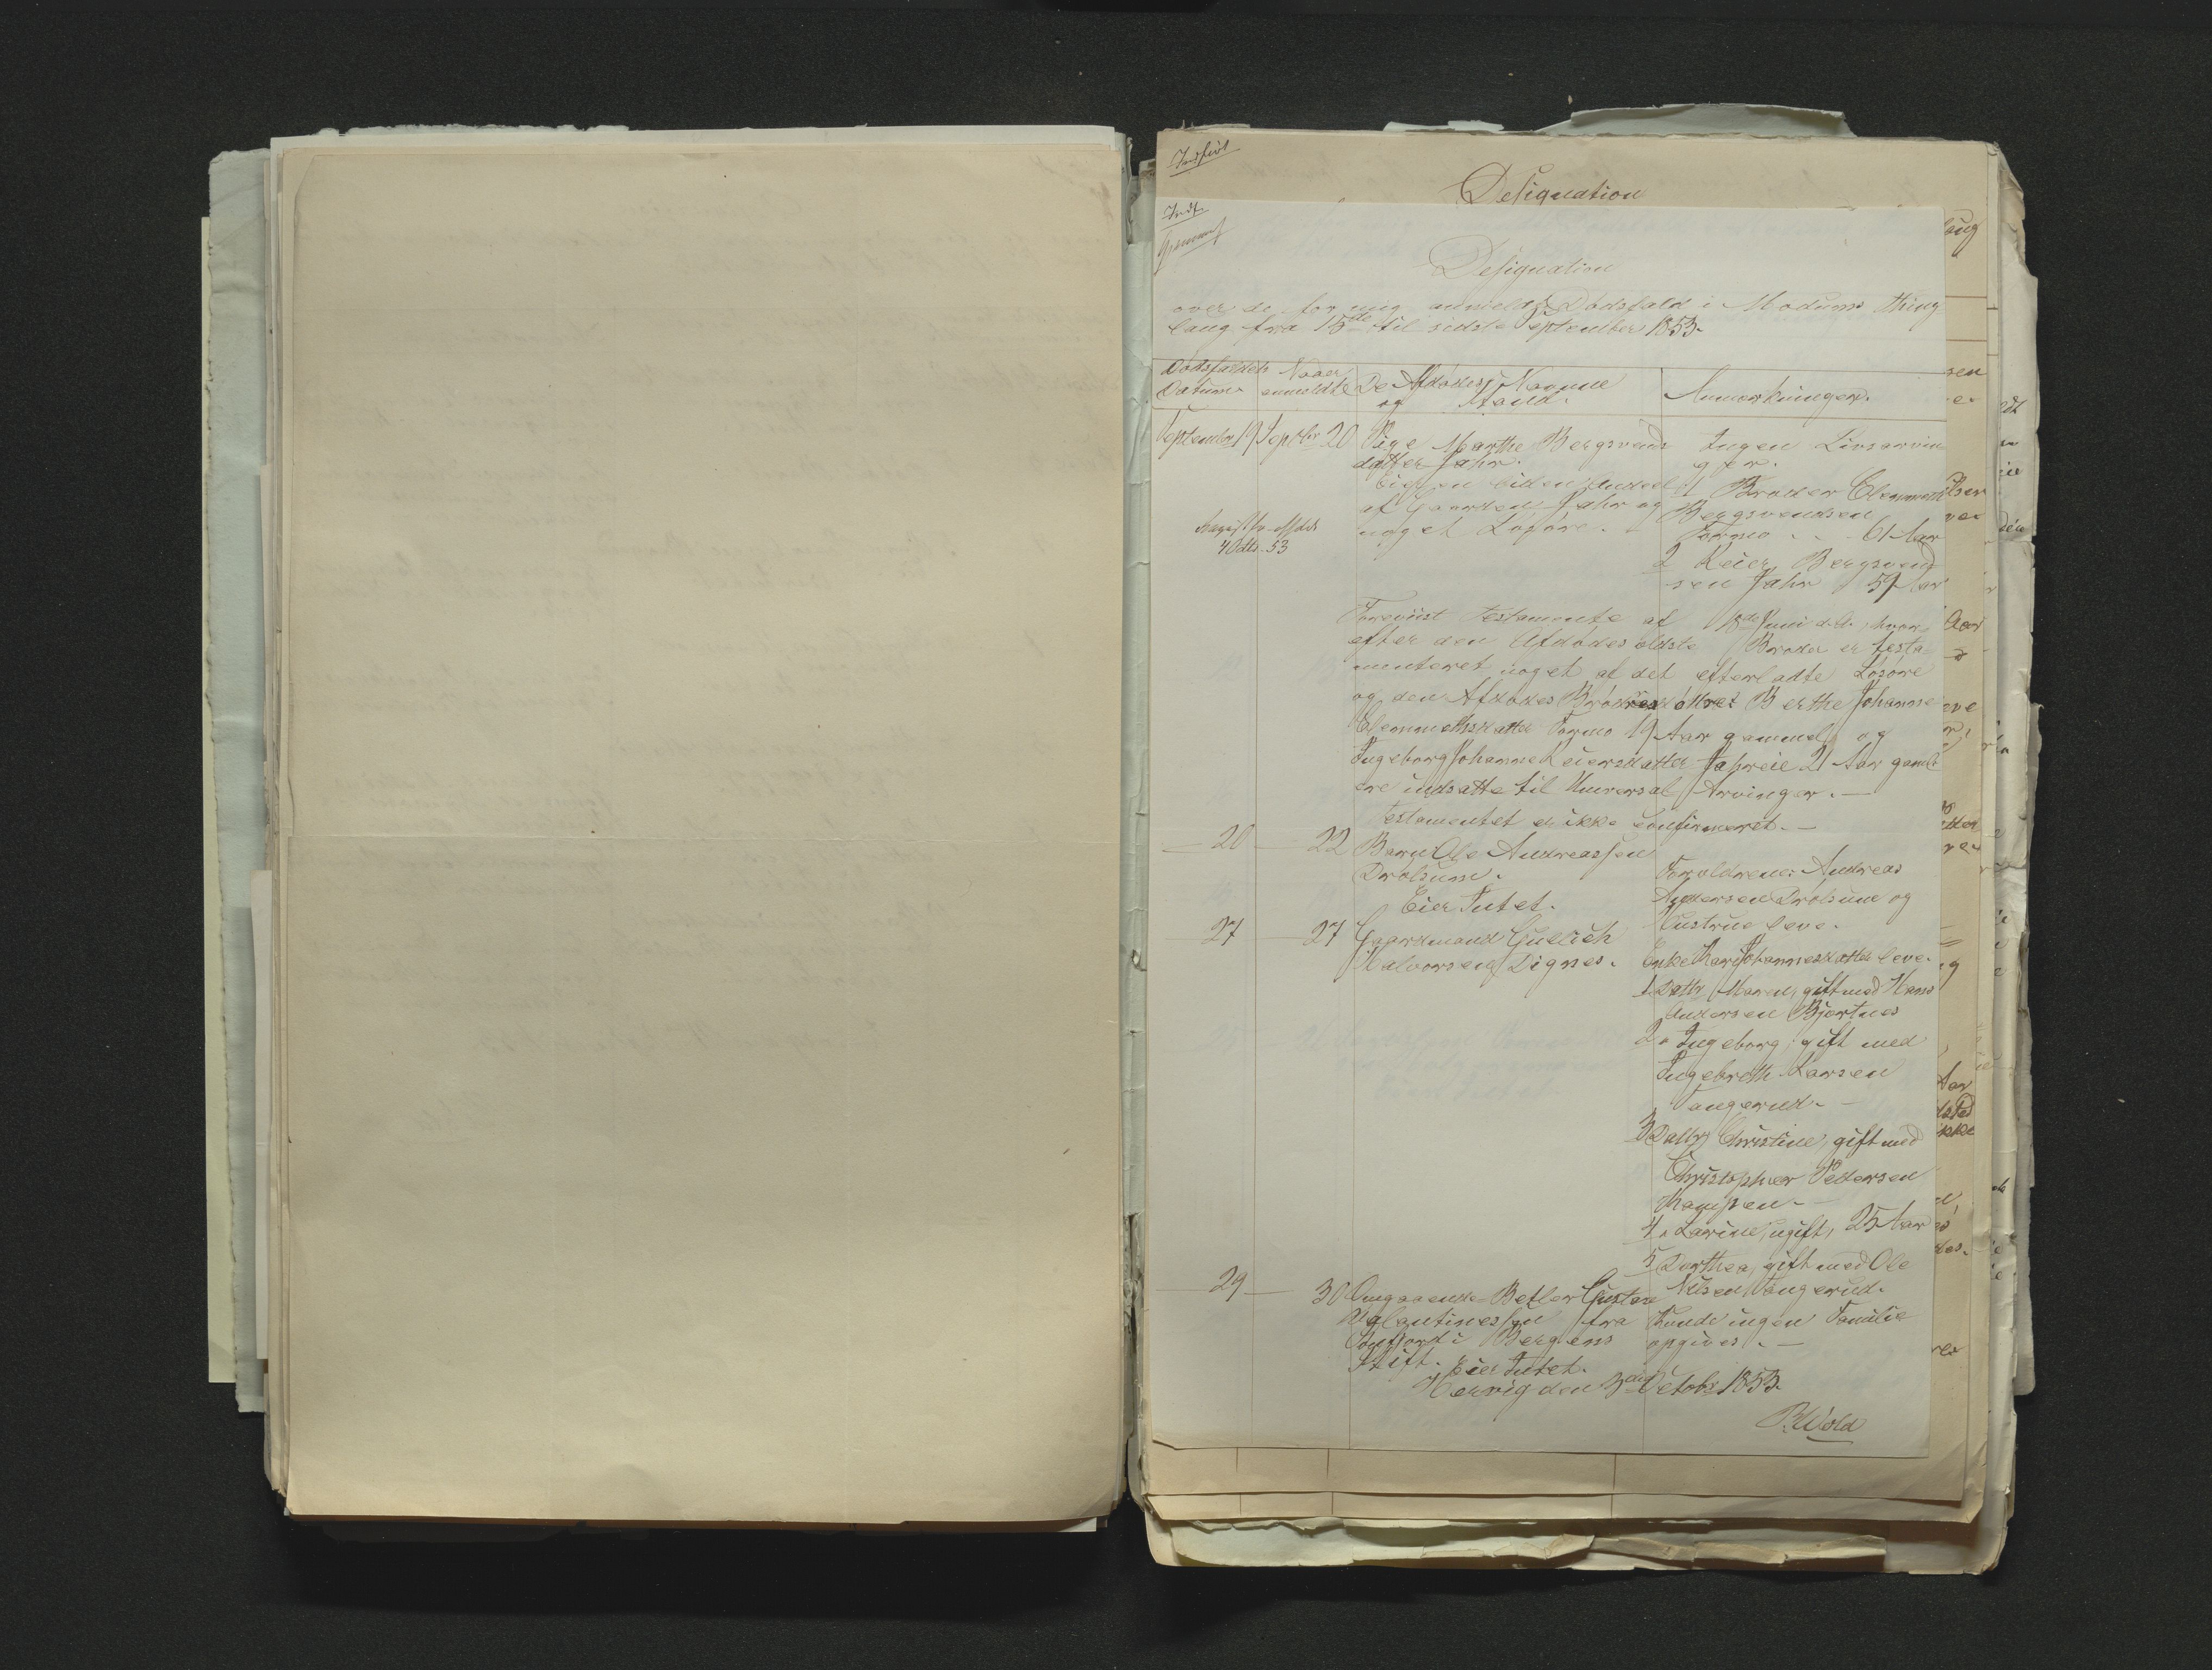 Indført
Designation
Indf.
Designation
over de for mig anmeldte Dødsfald i Modums Thing
laug fra 15de til sidste September 1853.
Dødsfaldets
Datum.
Naar
anmeldte
De Afdødes Navne
og Stand.
Anmærkninger.
September 19 Septbr 20 Pige Marthe Bergsvends
datter Jahr.
Eier en liden Andeel
af Gaarden Jahr og
noget Løsøre.
4 Octbr. 53
Ingen Livsarvin
ger.
1 Broder Clemmeth
Bergsvendsen
Formo . . 61 Aar
2 Reier Bergsvend
sen Jahr 59 Aar
Foreviist Testamente af 18de Juni d.A., hvor
efter den Afdødes ældste Broder er testa
menteret noget af det efterladte Løsøre
og den Afdødes Brødredøttre: Berthe Johanne
Clemmethsdatter Formo 19 Aar gammel og
Ingeborg Johanne Reiersdatter Jahreie 21 Aar gaml
ere indsatte til Universal Arvinger.—
Testamentet er ikke confirmeret.—
— 20 — 22 Barn Ole Andreassen
Drolsum.
Eier Intet.
Forældrene: Andreas
Andersen Drolsum og
Hustrue leve.
— 27 — 27 Gaardmand Gulich
Halvorsen Dignes.
Enke Kari Johannesdatter lever
1 Dattr Maren, gift med Hans
Andersen Bjørtnes
2 " Ingeborg, gift med
Ingebreth Larsen
Tangerud.—
3 Dattr Christine, gift med
Christopher Pedersen
Kampen.—
4 " Larine, ugift, 25 Aar
5 Dorthea, gift med Ole
Nilsen Tangerud.
— 29 — 30 Omgaaende Betler Gustav
Valentinessen fra
i Bergens
Stift. Eier Intet.
Kunde ingen Familie
opgives.—
Hervig den 3die Octobr 1853.
B. Wold